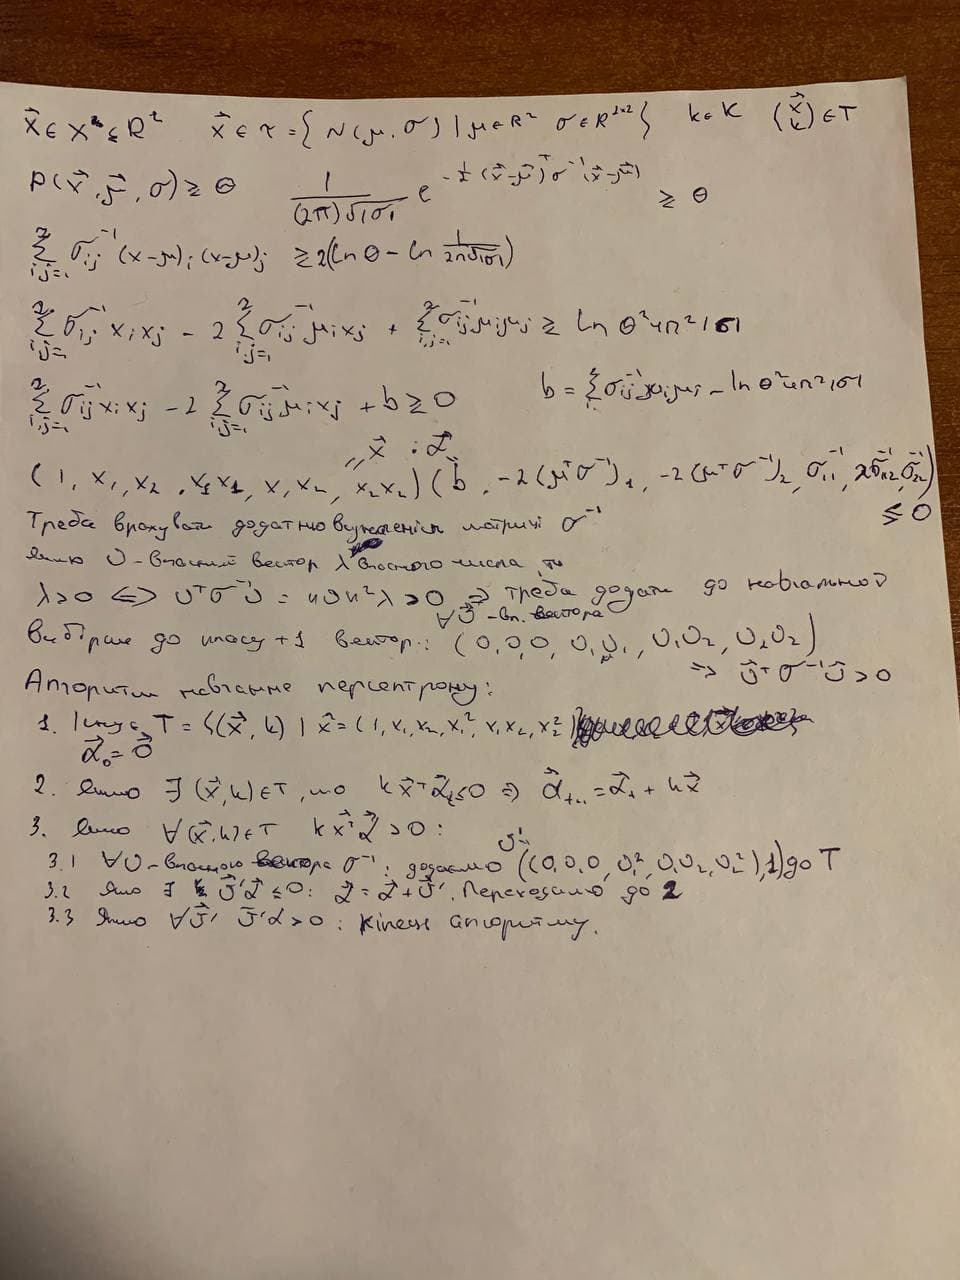 x⃗ ∈ X² ⊆ R² x⃗ ∈ τ = { N(μ, σ) | μ ∈ R² σ ∈ R²ˣ² } k ∈ K (x⃗ k) ∈ T
p(x⃗, μ⃗, σ) ≥ θ 1/((2π)√|σ|) e^(-½ (x⃗-μ⃗)ᵀ σ⁻¹ (x⃗-μ⃗)) ≥ θ
Σ²ᵢ,ⱼ₌₁ σᵢⱼ⁻¹ (x-μ)ᵢ (x-μ)ⱼ ≥ 2(ln θ - ln 1/(2π√|σ|))
Σ²ᵢ,ⱼ₌₁ σᵢⱼ⁻¹ xᵢxⱼ - 2 Σ²ᵢ,ⱼ₌₁ σᵢⱼ⁻¹ μᵢxⱼ + Σ²ᵢ,ⱼ₌₁ σᵢⱼ⁻¹ μᵢμⱼ ≥ ln θ²4π²|σ|
Σ²ᵢ,ⱼ₌₁ σᵢⱼ⁻¹ xᵢxⱼ - 2 Σ²ᵢ,ⱼ₌₁ σᵢⱼ⁻¹ μᵢxⱼ + b ≥ 0 b = Σ σᵢⱼ⁻¹ μᵢμⱼ - ln θ²4π²|σ|
"x⃗ : α⃗
(1, x₁, x₂, x₁x₁, x₁x₂, x₂x₂) (b, -2(μᵀσ⁻¹)₁, -2(μᵀσ⁻¹)₂, σ₁₁⁻¹, 2σ₁₂⁻¹, σ₂₂⁻¹) ≤ 0
Треба врахувати додатню матриці σ⁻¹
Якщо υ - власний вектор λ власного числа то
λ > 0 ⟺ υᵀσ⁻¹υ = ‖υ‖²λ > 0 ⇒ треба додати до навчальної
∀υ⃗ - вл. вектора
вибірки до класу +1 вектор: (0, 0, 0, υ₁υ₁, υ₁υ₂, υ₂υ₂)
⇒ υ⃗ᵀσ⁻¹υ⃗ > 0
Алгоритм навчання персептрону:
1. T = {(x⃗, k) | x⃗ = (1, x₁, x₂, x₁², x₁x₂, x₂²)
α⃗₀ = 0⃗
2. Якщо ∃ (x⃗, k) ∈ T, що k x⃗ᵀα⃗ₜ ≤ 0 ⇒ α⃗ₜ₊₁ = α⃗ₜ + kx⃗
3. Якщо ∀(x⃗, k) ∈ T k x⃗ᵀα⃗ > 0:
3.1 ∀υ - власного вектора σ⁻¹: додаємо υ⃗' ((0, 0, 0, υ₁², υ₁υ₂, υ₂²), 1) до T
3.2 Якщо ∃ υ⃗'α⃗ ≤ 0: α⃗ = α⃗ + υ⃗'. Переходимо до 2
3.3 Якщо ∀υ⃗' υ⃗'α > 0: Кінець алгоритму.